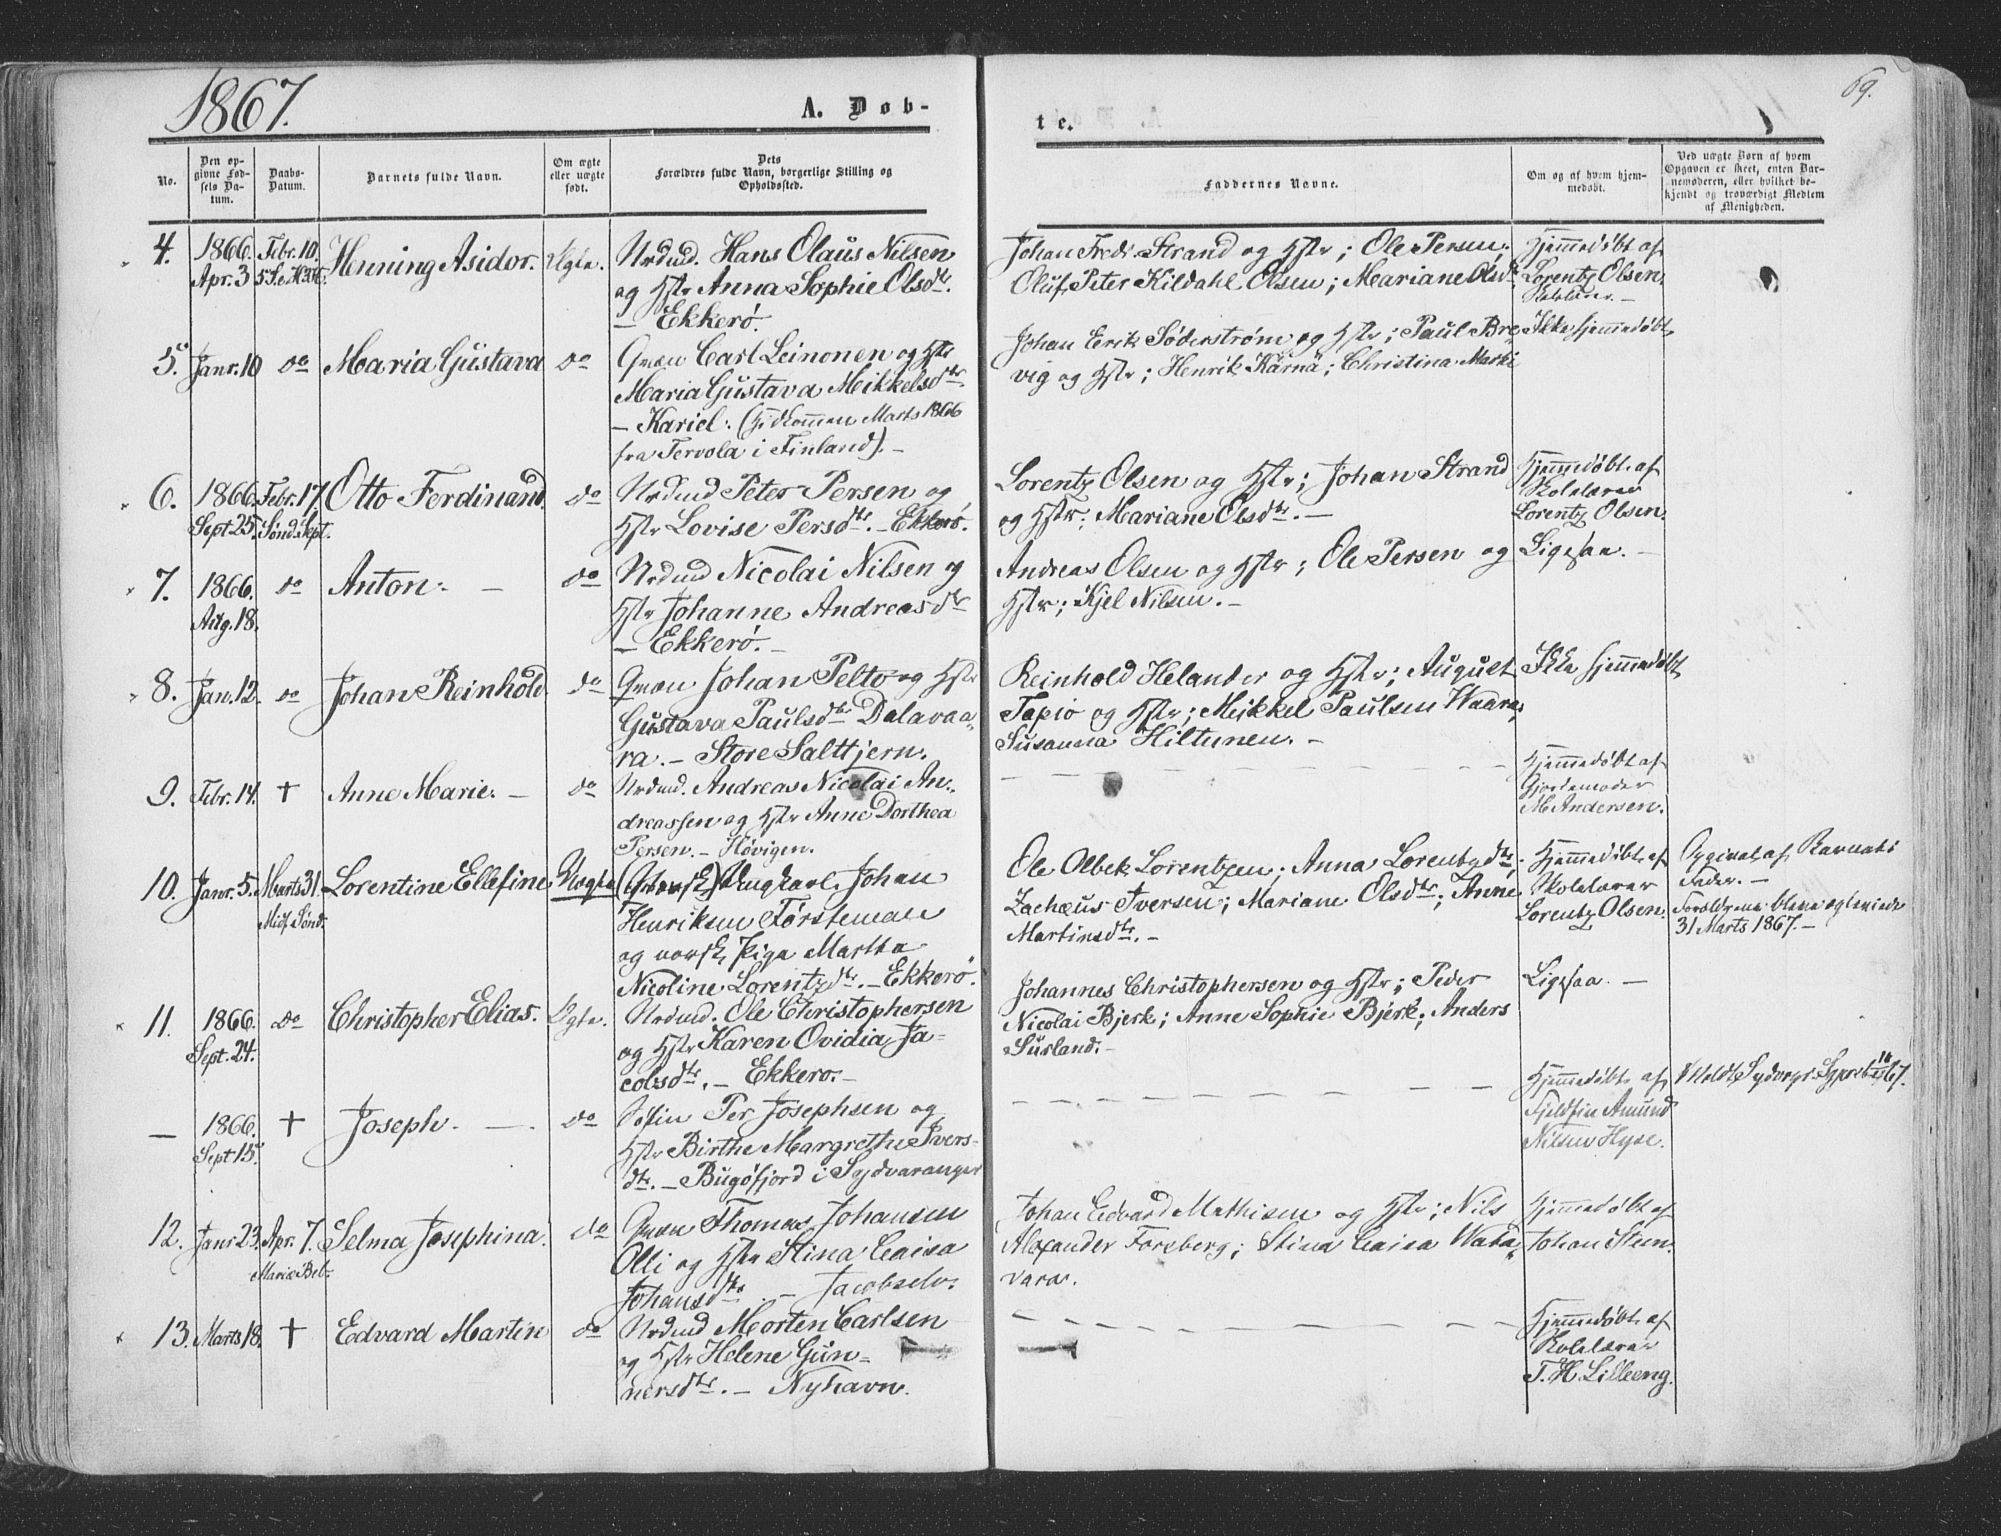 1867.
A. Døb-
te.
69.
No.
Den op-
givne Fød-
sels Da-
tum.
Daabs-
Datum.
Barnets fulde Navn.
Om ægte
eller uægte
født.
Dets
Forældres fulde Navn, borgerlige Stilling og
Opholdssted.
Faddernes Navne.
Om og af hvem hjem-
medøbt.
Ved uægte Børn af hvem
Opgaven er skeet, enten Bar-
nemoderen, eller hvilket be-
kjendt og troværdigt Medlem
af Menigheden.
4. 1866. Apr. 3
Febr. 10.
Henning Asidor.
Ægte.
Nrdmd. Hans Olaus Nilsen
og Hstr Anna Sophie Olsdtr.
— Ekkerö.
Johan Fredr. Strand og Hstr; Ole Persen;
Oluf Peter Kildahl Olsen; Mariane Olsdtr.
Hjemmedøbt af
Lorentz Olsen,
Skolelærer. —
5. Janr. 10
do
Maria Gustava
do
Qvæn Carl Leinonen og Hstr
Maria Gustava Mikkelsdtr
— Kariel. (Hidkommen Marts 1866
fra Tervola i Finland). —
Johan Eerik Söderström og Hstr; Paul Bre-
vig og Hstr; Henrik Kärnä; Christina Marki
Ikke hjemmedøbt
6. 1866. Sept. 25.
Febr. 17,
Sønd. Sept.
Otto Ferdinand.
do
Nrdmd Peter Persen og
Hstr Lovise Persdtr. — Ekkerö.
Lorentz Olsen og Hstr; Johan Strand
og Hstr; Mariane Olsdtr. —
Hjemmedøbt af
Skolelærer
Lorentz Olsen.
7. 1866. Aug. 18.
do
Anton. —
do
Nrdmd Nicolai Nilsen og
Hstr Johanne Andreasdtr
— Ekkerö. —
Andreas Olsen og Hstr; Ole Persen og
Hstr; Kjel Nilsen. —
Ligesaa. —
8. Jan. 12.
do
Johan Reinhold.
do
Qvæn Johan Pelto og Hstr
Gustava Paulsdtr Dalavaa-
ra. — Store Saltjern.
Reinhold Helander og Hstr; August
Tapio og Hstr; Mikkel Paulsen Waara,
Susanna Hiltunen. —
Ikke hjemmedøbt
9. Febr. 14.
†
Anne Marie. —
do
Nrdmd. Andreas Nicolai An-
dreassen og Hstr Anne Dorthea
Persen. — Høvigen.
Hjemmedøbt af
Gjordemoder
M. Andersen.
10. Janr. 5.
Marts 31.
Midf. Sønd.
Lorentine Ellefine,
Uægte
(Svensk) Ungkarl Johan
Henriksen Försteman
og norsk Pige Martha
Nicoline Lorentzdtr. — Ekkerö.
Ole Olbek Lorentzen; Anna Lorentzdtr.
Zachæus Iversen; Mariane Olsdtr; Anne
Martinsdtr. —
Hjemmedøbt af
Skolelærer
Lorentz Olsen.
Opgivet af Barnets
Fader. —
Forældrene bleve egteviede
31 Marts 1867. —
11. 1866. Sept. 24.
do
Christopher Elias.
Ægte.
Nrdmd. Ole Christophersen
og Hstr Karen Ovidia Ja-
cobsdtr. — Ekkerö. —
Johannes Christophersen og Hstr; Peder
Nicolai Bjerk; Anne Sophie Bjerk; Anders
Susland. —
Ligesaa. —
— 1866. Sept 15.
†
Joseph. —
do
Søfin Per Josephsen og
Hstr Birthe Margrethe Ivers-
dtr. — Bugöfjord i Sydvaranger
Hjemmedøbt af
Fjeldfin Amund
Nilsen Hyse.
12. Janr. 23.
Apr. 7.
Mariæ Beb.
Selma Josephina.
do
Qvæn Thomas Johansen
Olli og Hstr Stina Caisa
Johansdtr. — Jacobselv.
Johan Edvard Mathisen og Hstr; Nils
Alexander Forsberg; Stina Caisa Wata-
vara.
Hjemmedøbt af
Johan Stein.
13. Marts 18.
†
Edvard Martin
do
Nrdmd Morten Carlsen
og Hstr Helene Gun-
nersdtr. — Nyhavn.
Hjemmedøbt af
Skolelærer
T. H. Lilleeng.